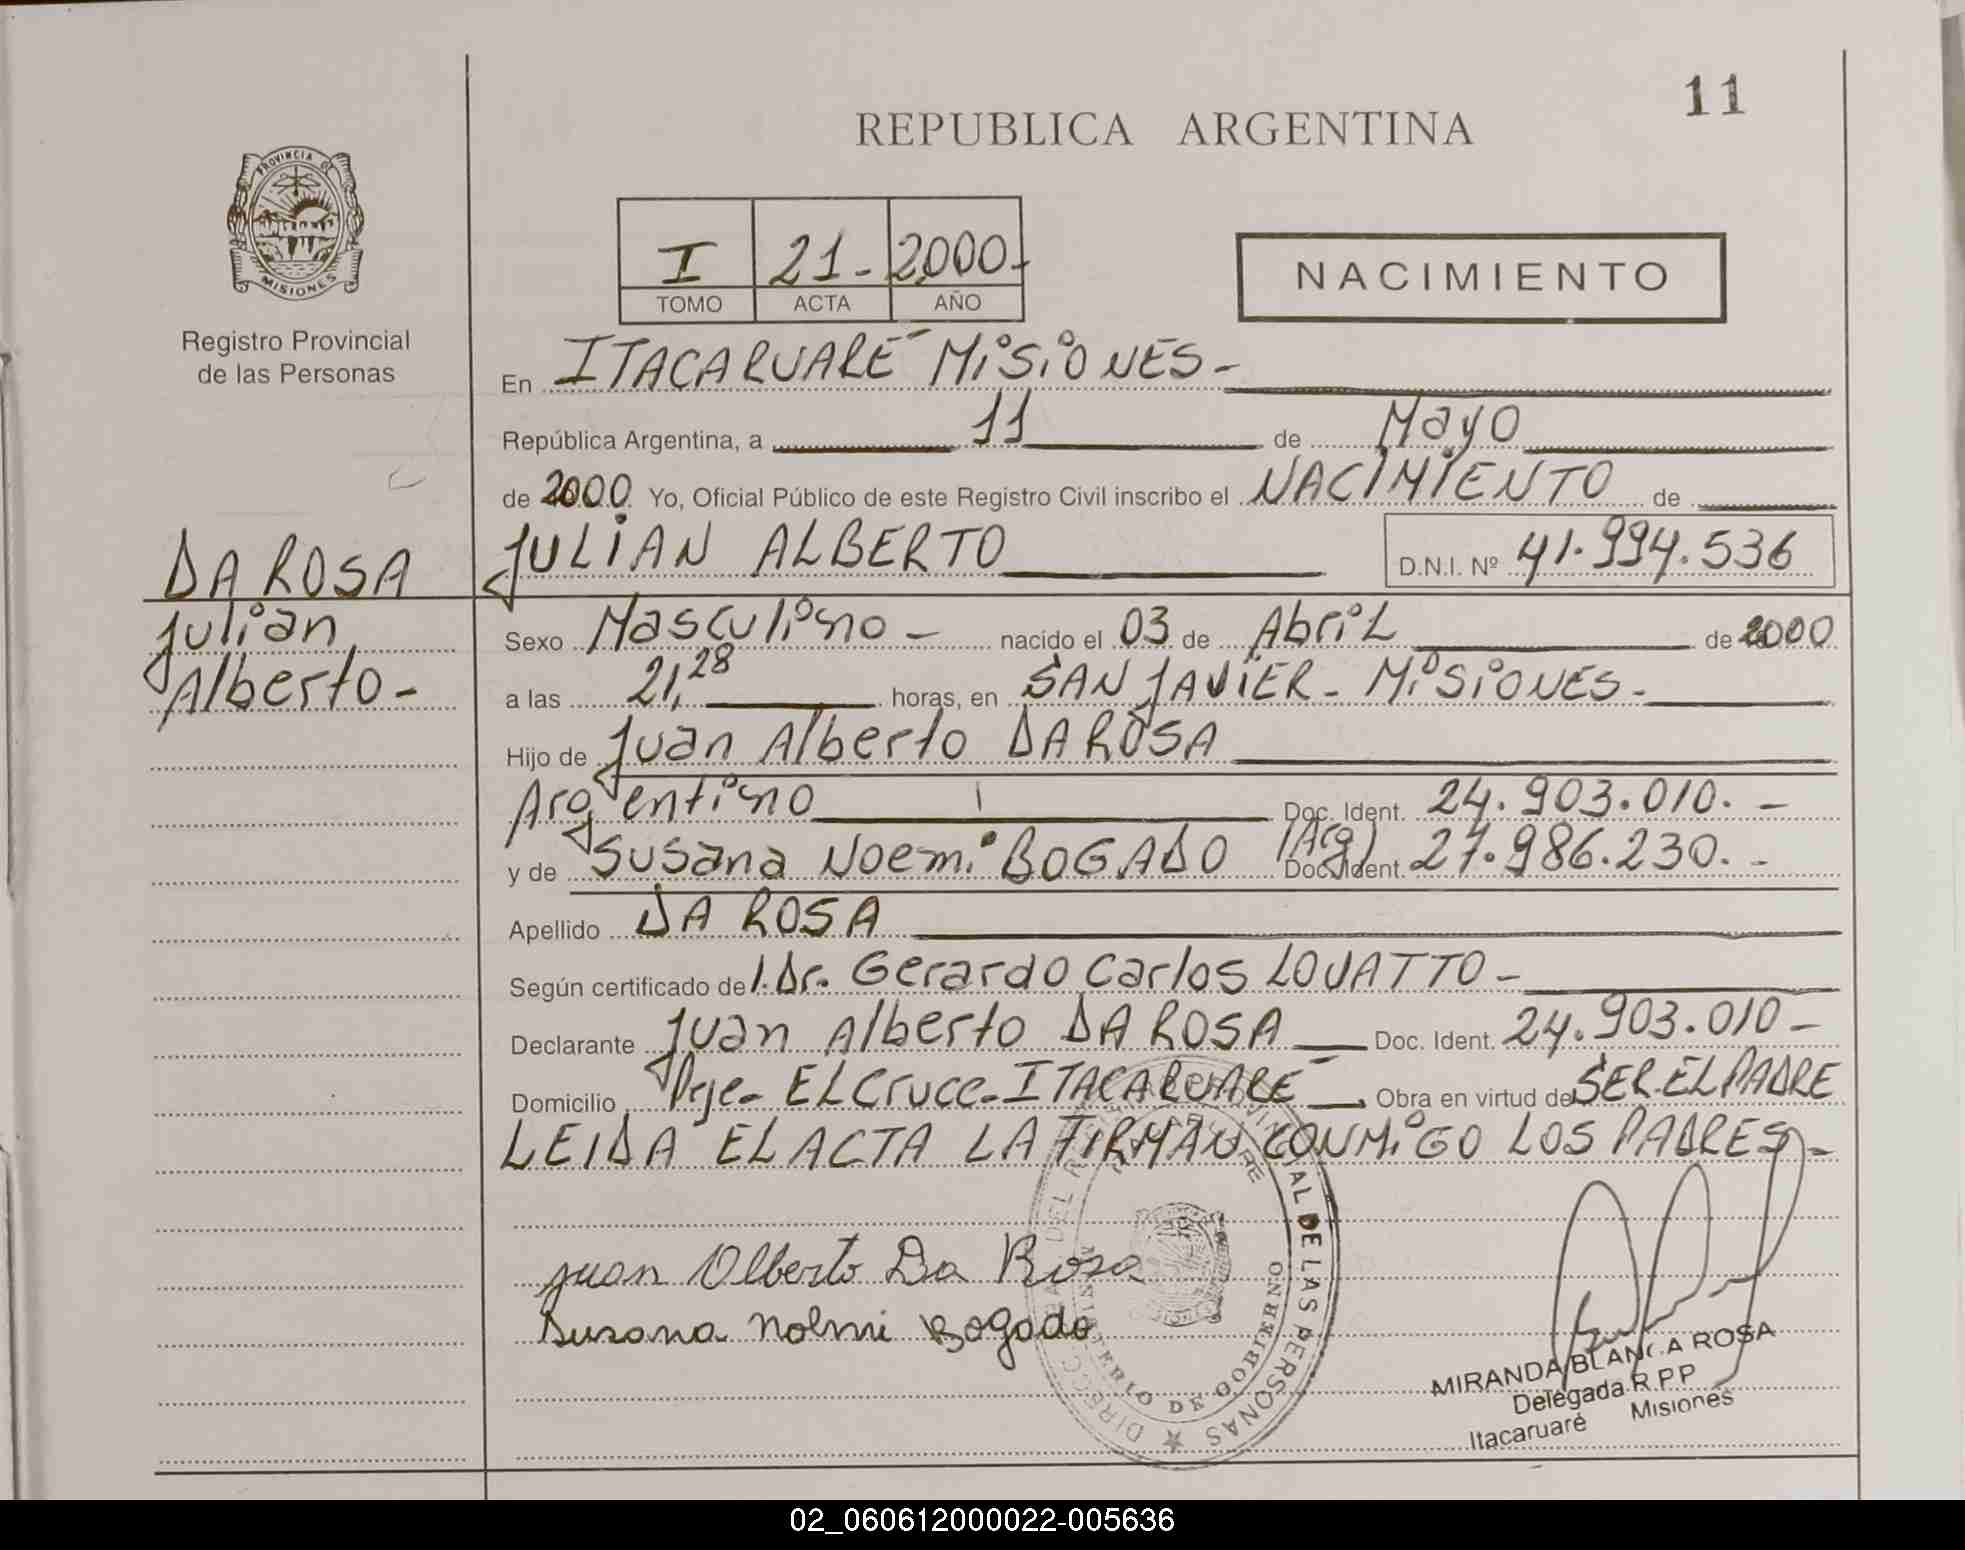 11
REPUBLICA ARGENTINA
PROVINCIA DE
MISIONES
Registro Provincial
de las Personas
I 21- 2000-
TOMO ACTA AÑO
NACIMIENTO
En ITACARUARÉ MISIONES-
República Argentina, a 11 de Mayo
de 2000 Yo, Oficial Público de este Registro Civil inscribo el NACIMIENTO de
DA ROSA JULIAN ALBERTO D.N.I. Nº 41.994.536
Julian Sexo Masculino - nacido el 03 de Abril de 2000
Alberto- a las 21,28 horas, en SAN JAVIER - MISIONES-
Hijo de Juan Alberto DA ROSA
Argentino Doc. Ident. 24.903.010. -
y de Susana Noemi BOGADO (Arg) Doc. Ident. 27.986.230. -
Apellido DA ROSA
Según certificado del Dr. Gerardo Carlos LOVATTO -
Declarante Juan Alberto DA ROSA Doc. Ident. 24.903.010 -
Domicilio Pje- EL Cruce- ITACARUARÉ Obra en virtud de SER EL PADRE
LEIDA EL ACTA LA FIRMAN CONMIGO LOS PADRES -
Juan Alberto Da Rosa
Susana Noemi Bogado
DEL DE LAS PERSONAS
MINISTERIO DE GOBIERNO
MIRANDA BLANCA ROSA
Delegada R P P
Itacaruaré Misiones
02_060612000022-005636